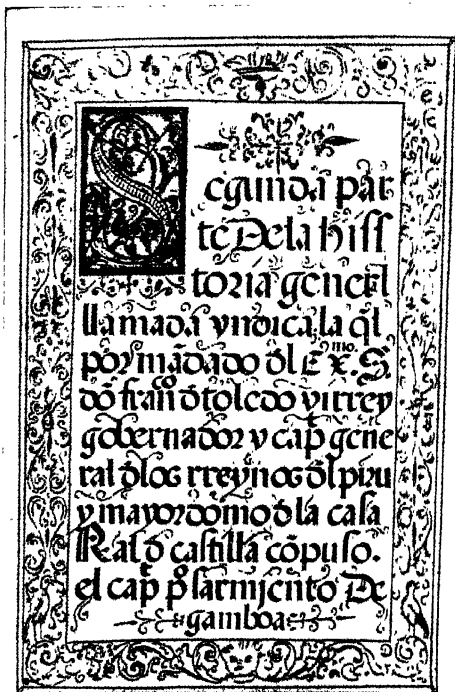 Segunda par
te Dela hiss
toria generl
llamada yndica, la ql
por mãdado dl Exmo. S.
dõ franco d toledo virrey
gobernador y cap gene
ral dlos rreynos dl piru
y mayordomo d la casa
Real d castilla cõpuso.
el cap po sarmiento De
gamboa